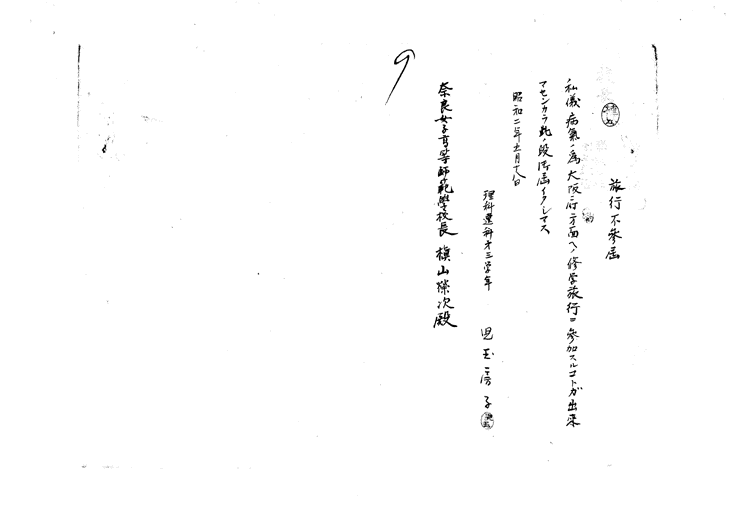 旅行不参届
私儀病氣ノ為大阪府方面ヘノ修学旅行ニ参加スルコトガ出来
マセンカラ此ノ段御届イタシマス
昭和二年五月十八日
理科選科第三学年
児玉房子
奈良女子高等師範學校長 槇山榮次殿